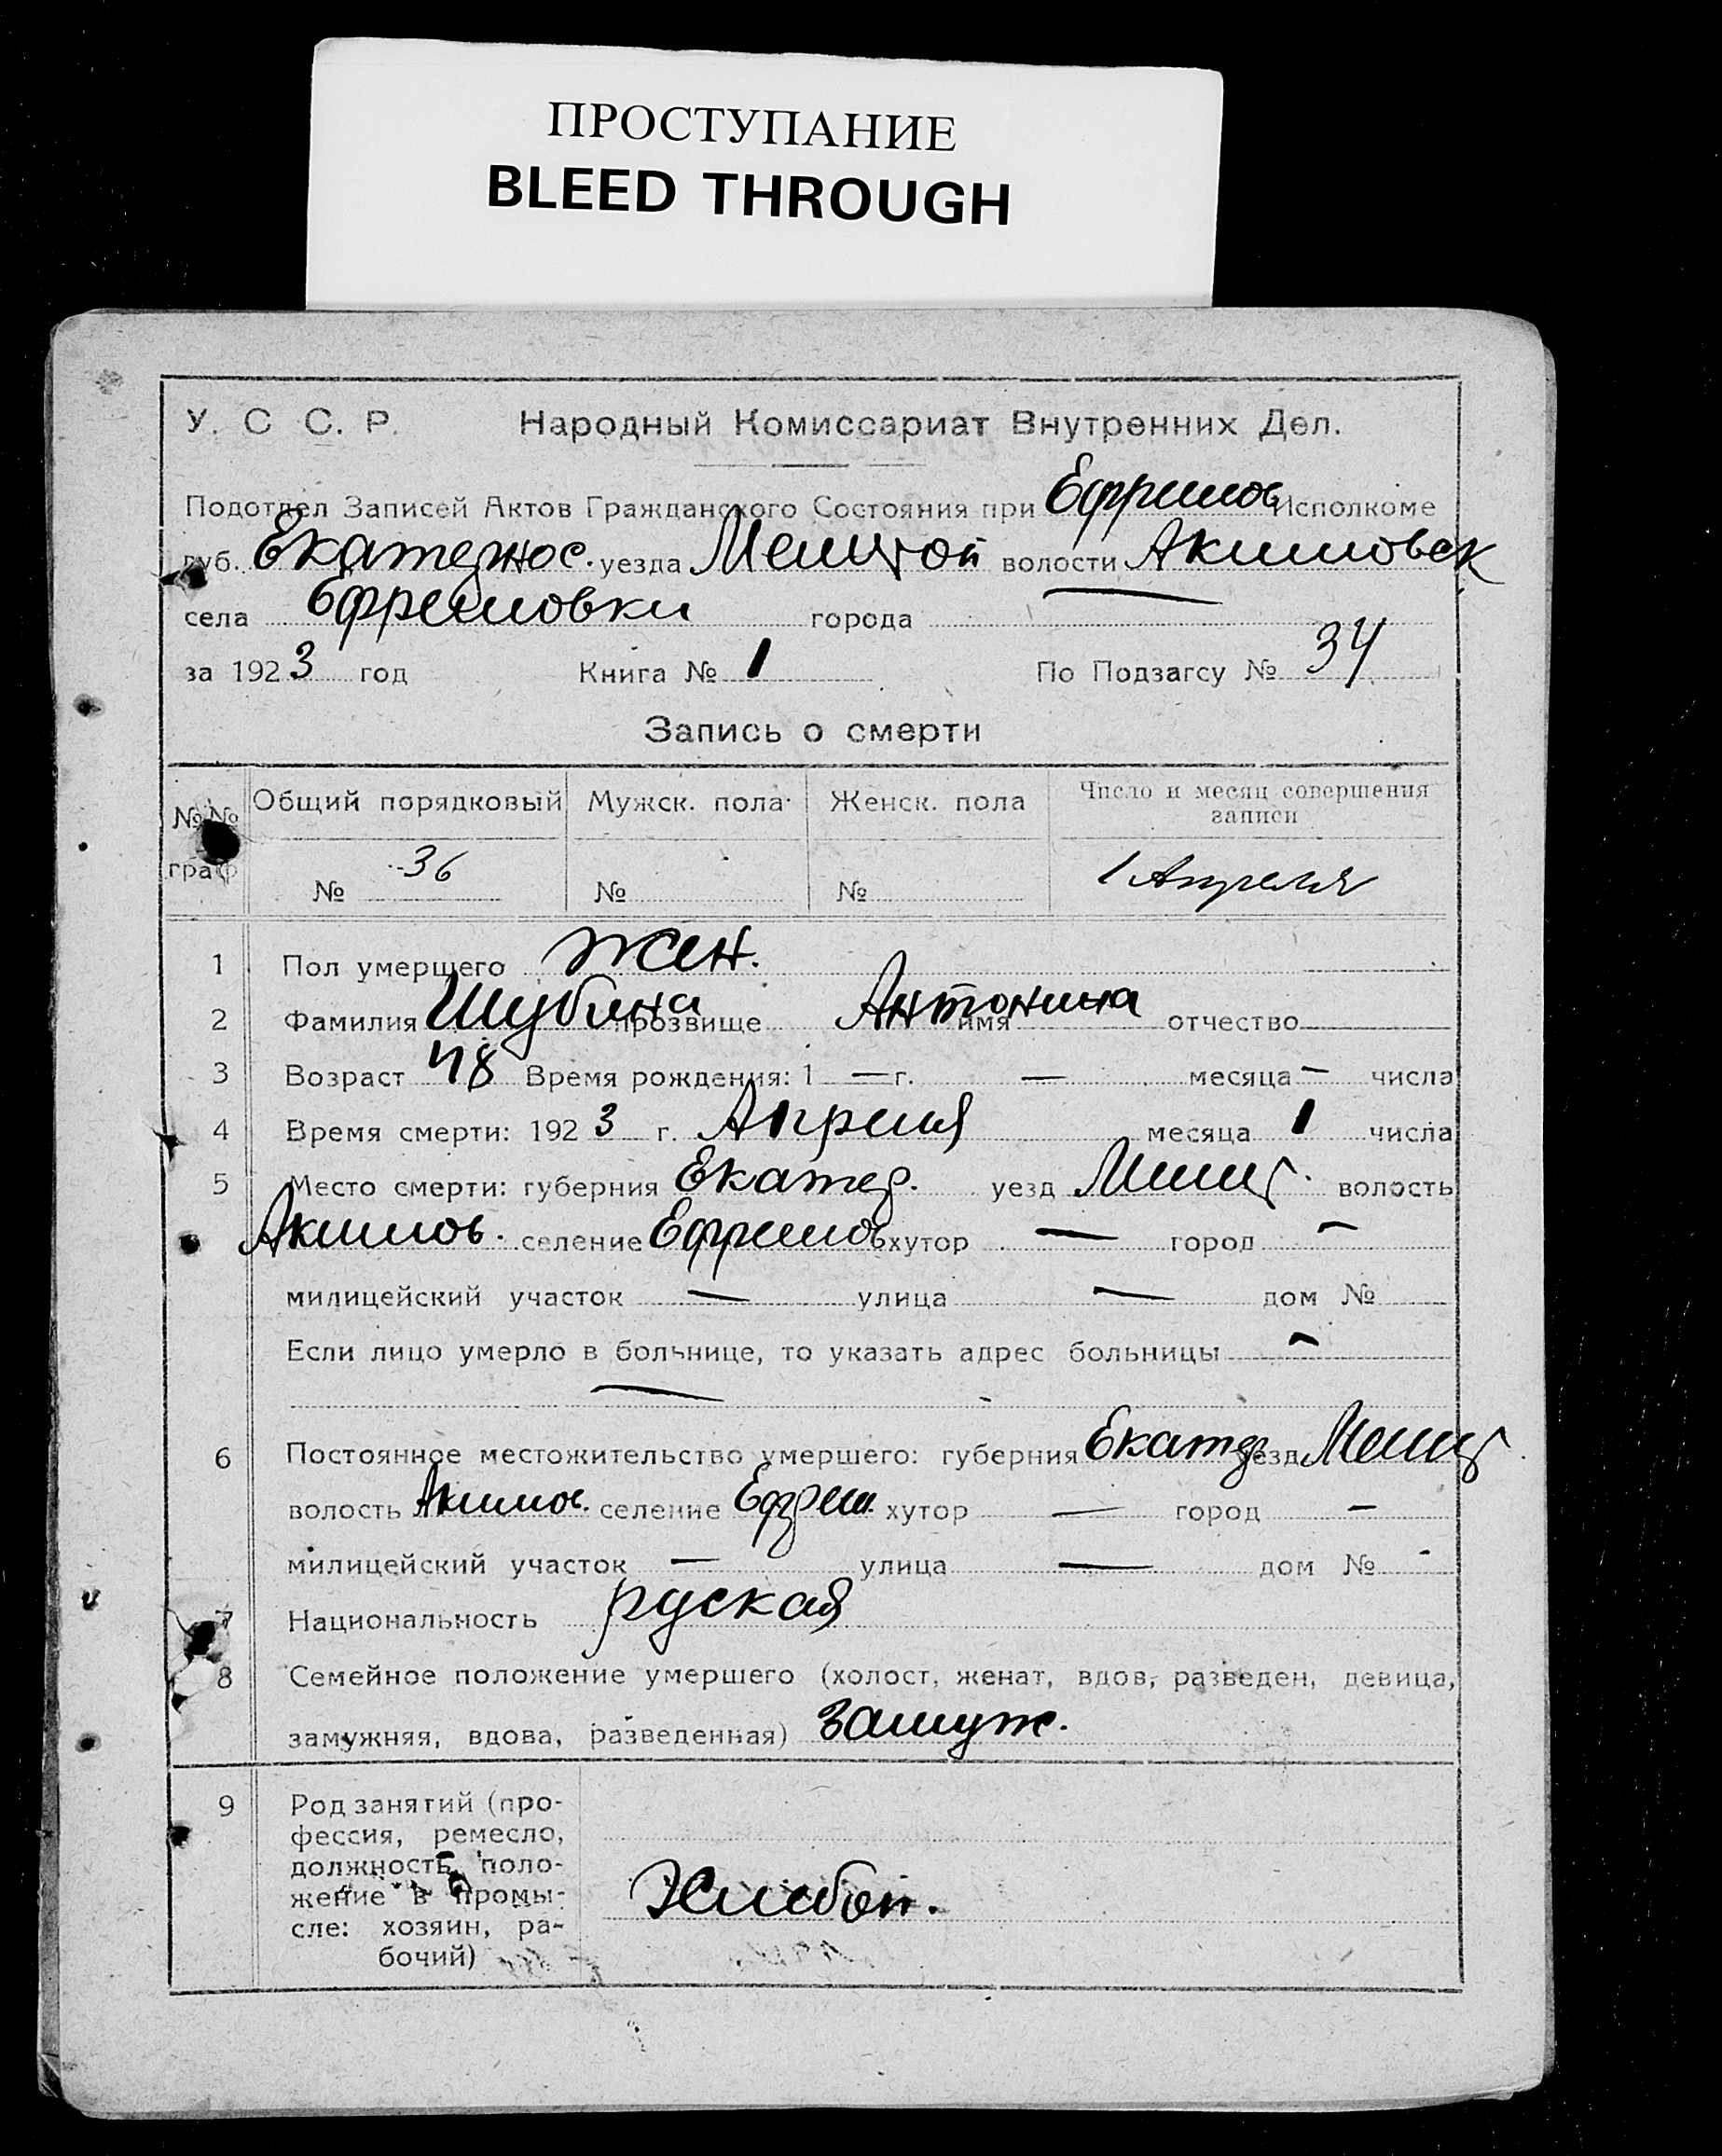 ПРОСТУПАНИЕ
BLEED THROUGH
У. С С. Р. Народный Комиссариат Внутренних Дел.
Подотдел Записей Актов Гражданского Состояния при Ефремов Исполкоме
губ. Екатеринос. уезда Мелитой волости Акимовск
села Ефремовки города —
за 1923 год Книга № 1 По Подзагсу № 34
Запись о смерти
№№ граф Общий порядковый Мужск. пола Женск. пола Число и месяц совершения записи
№ 36 № № 1 Апреля
1 Пол умершего жен.
2 Фамилия Шубина прозвище Антонина имя отчество
3 Возраст 48 Время рождения: 1 — г. — месяца — числа
4 Время смерти: 1923 г. Апреля месяца 1 числа
5 Место смерти: губерния Екатер. уезд Мелит. волость
Акимов. селение Ефремов хутор — город —
милицейский участок — улица — дом №
Если лицо умерло в больнице, то указать адрес больницы —
—
6 Постоянное местожительство умершего: губерния Екатер уезд Мелит
волость Акимов. селение Ефрем. хутор — город —
милицейский участок — улица — дом № -
7 Национальность руская
8 Семейное положение умершего (холост, женат, вдов, разведен, девица,
замужняя, вдова, разведенная) замуж.
9 Род занятий (про-
фессия, ремесло,
должность, поло-
жение в промы-
сле: хозяин, ра-
бочий)
Хлебоп.